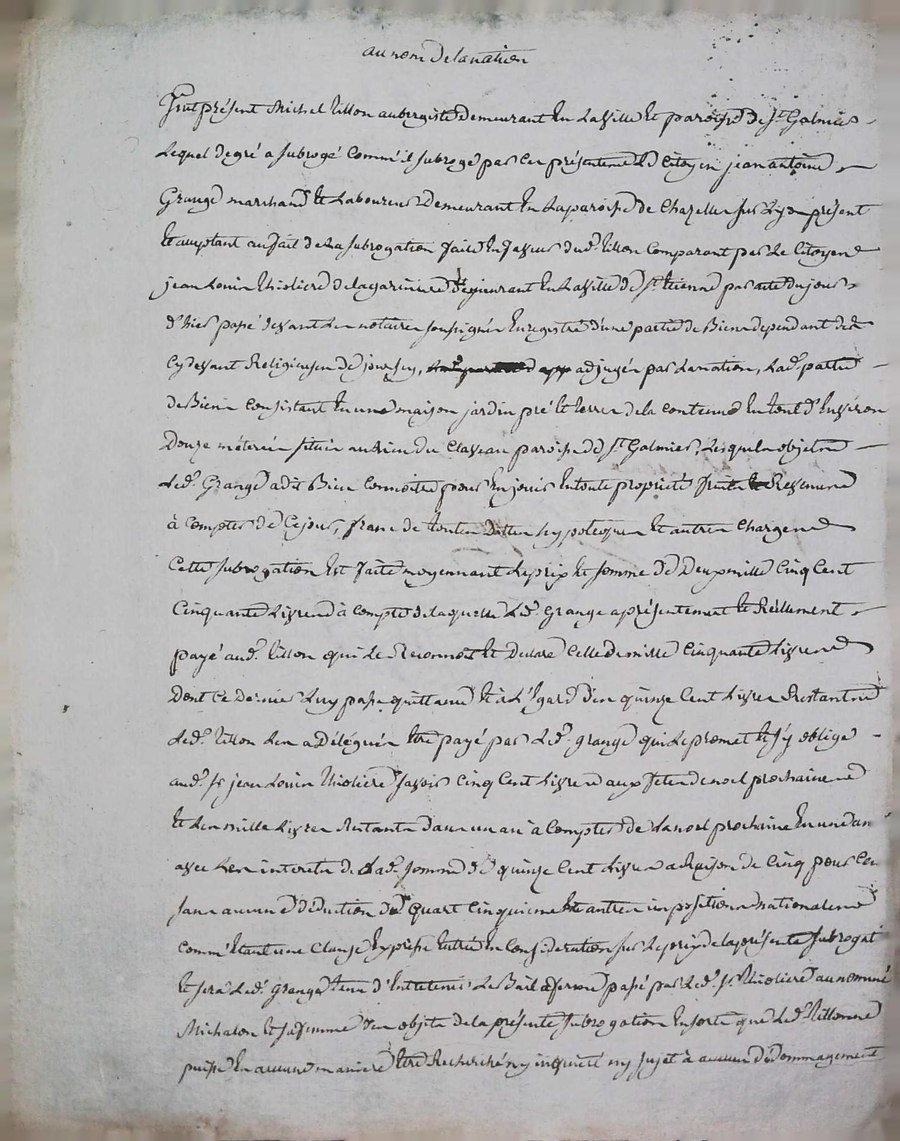 au nom de la nation
Fut présent Michel tillon aubergiste demeurant en la ville et paroisse de St Galmier
Lequel de gré a subrogé comm'il subroge par ces présentes le Citoyen jean antoine
Grange marchand et Laboureur demeurant en la paroisse de Chazelles sur Lyon présent
et acceptant au fait de la subrogation faite en faveur dud. tillon comparant par le Citoyen
jean Louis thiolière delagariniere demeurant en la ville de St etienne par acte du jour
d'hier passé devant les notaires soussignés enregistré d'une partie de Biens dependant des
cy devant Religieuses de joursey, adjugés par la nation, Lad. partie
de Biens Consistant en une maison jardin pré et terres de la contenue en tout d'environ
Douze méterées situés au lieu du Claveau paroisse de St Galmier, Lesquels objets
Led. Grange a dit Bien Connoitre pour en jouir en toute propriété fruits et Revenus
à Compter de Ce jour, franc de toutes dettes hypoteques et autres Charges
Cette subrogation est faite moyennant le prix et somme de Deux mille Cinq Cent
Cinquante Livres à compte de laquelle Led. Grange a présentement et Réellement
payé aud. tillon qui le Reconnoit et Declare Celle de mille Cinquante Livres
Dont ce Dernier Luy passe quittance et à L'égard des quinze Cent Livres Restantes
Led. tillon Les a Délégués être payé par Led. grange qui le promet et s'y oblige
aud. sr jean Louis thiolière savoir Cinq Cent Livres aux fêtes de noel prochaines
et Les mille Livres Restants dans un an à Compter de la noel prochaine en un an
avec Les interets de Lad. somme de quinze Cent Livres a Raison de Cinq pour Ce
sans aucune déduction de quart Cinquieme et autres impositions nationales
comm'étant une Clause expresse entrée en Consideration sur le prix de la présente subrogat
et sera Led. grange tenu d'entretenir Le Bail a ferme passé par Led. sr thiolière au nommé
Michalon et sa femme des objets de la présente subrogation en sorte que Led. tillon ne
puisse en aucune maniere être Recherché ny inquiété ny sujet à aucun dédommagement